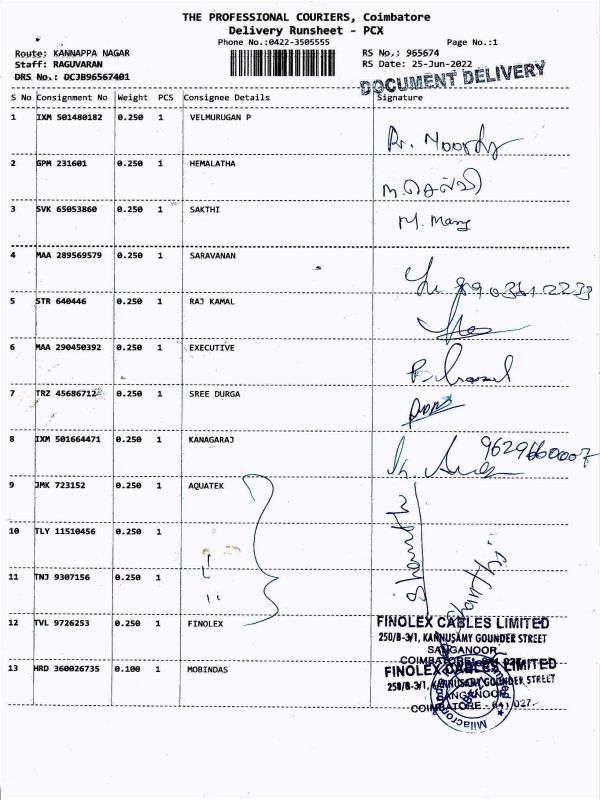 THE PROFESSIONAL COURIERS, Coimbatore
Delivery Runsheet - PCX
Phone No.:0422-3505555 Page No.:1
Route: KANNAPPA NAGAR RS No.: 965674
Staff: RAGUVARAN RS Date: 25-Jun-2022
DRS No.: DCJB96567401 DOCUMENT DELIVERY
S No Consignment No Weight PCS Consignee Details Signature
1 IXM 501480182 0.250 1 VELMURUGAN P
2 GPM 231601 0.250 1 HEMALATHA
3 SVK 65053860 0.250 1 SAKTHI M. Many
4 MAA 289569579 0.250 1 SARAVANAN
5 STR 640446 0.250 1 RAJ KAMAL
6 MAA 290450392 0.250 1 EXECUTIVE
7 TRZ 45686712 0.250 1 SREE DURGA
8 IXM 501664471 0.250 1 KANAGARAJ 9629660007
9 JMK 723152 0.250 1 AQUATEK
10 TLY 11510456 0.250 1
11 TNJ 9307156 0.250 1
12 TVL 9726253 0.250 1 FINOLEX FINOLEX CABLES LIMITED
250/B-3/1, KANNUSAMY GOUNDER STREET
SANGANOOR
COIMBATORE - 641 027.
13 HRD 360026735 0.100 1 MOBINDAS FINOLEX CABLES LIMITED
250/B-3/1, KANNUSAMY GOUNDER STREET
SANGANOOR
COIMBATORE - 641 027.